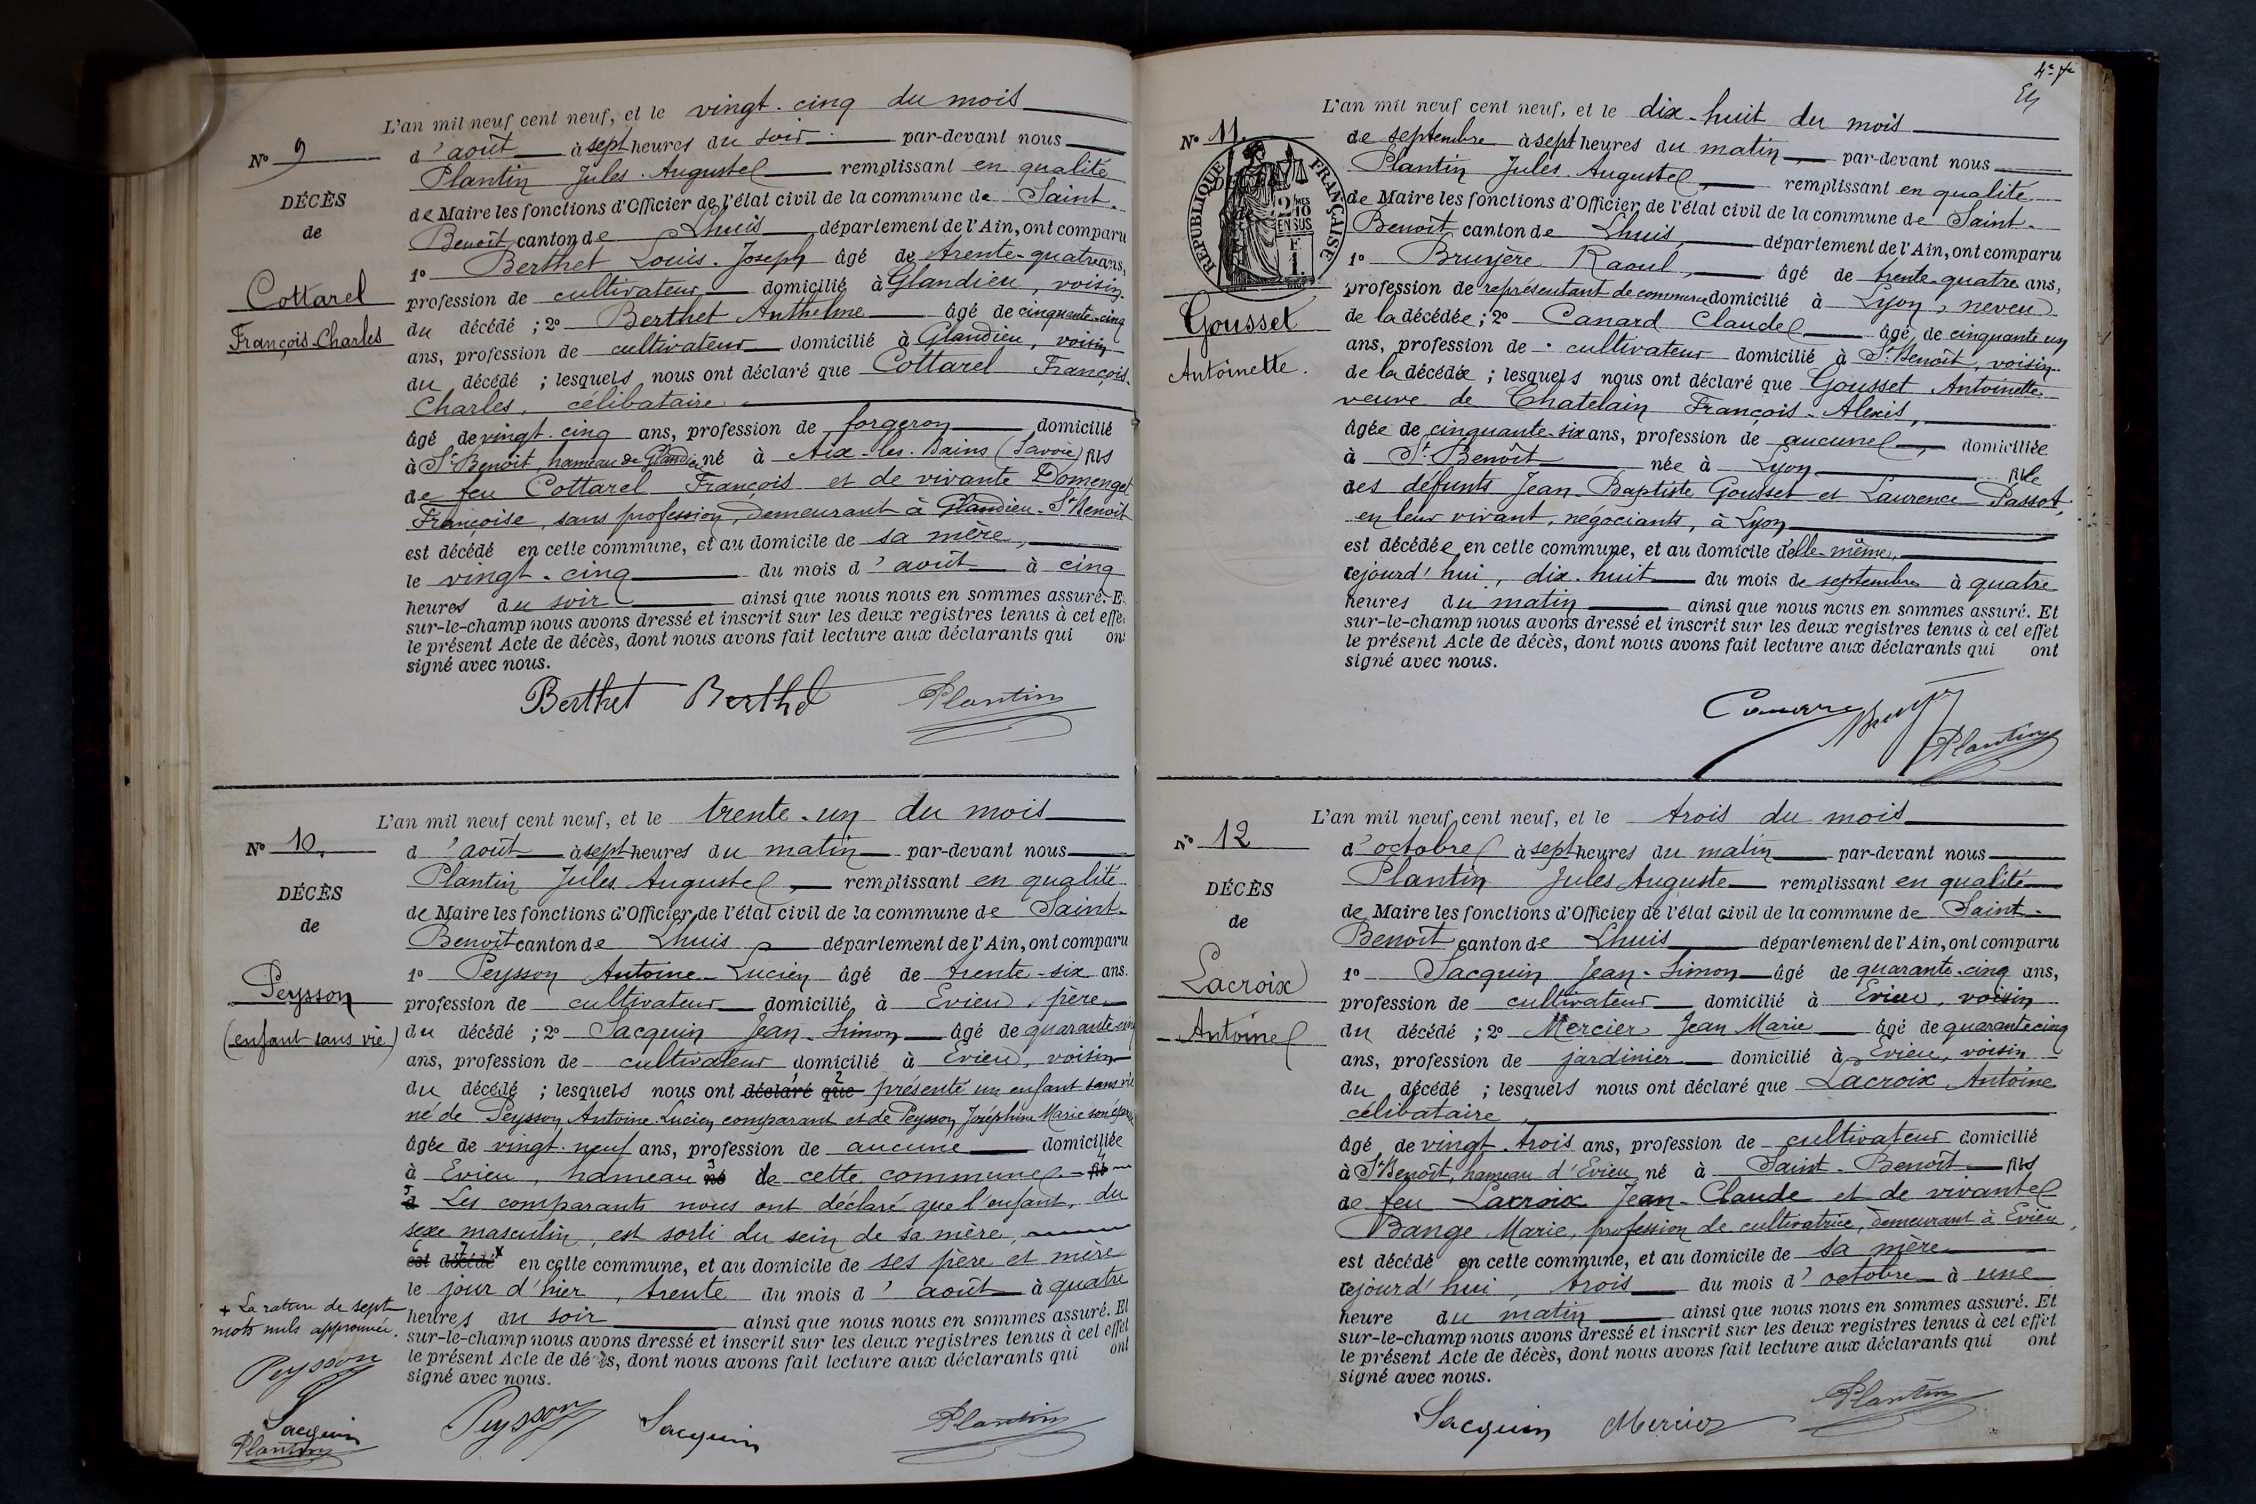 L'an mil neuf cent neuf, et le vingt-cinq du mois
N° 9
d'août à sept heures du soir par-devant nous
Plantin Jules Auguste remplissant en qualité
DÉCÈS
de Maire les fonctions d'Officier de l'état civil de la commune de Saint-
de
Benoît canton de Lhuis département de l'Ain, ont comparu
1° Berthet Louis-Joseph âgé de trente-quatre ans,
Cottarel
profession de cultivateur domicilié à Glandieu, voisin
François-Charles
du décédé ; 2° Berthet Anthelme âgé de cinquante-cinq
ans, profession de cultivateur domicilié à Glandieu, voisin
du décédé ; lesquels nous ont déclaré que Cottarel François-
Charles, célibataire
âgé de vingt-cinq ans, profession de forgeron domicilié
à St Benoît, hameau de Glandieu né à Aix-les-Bains (Savoie) fils
de feu Cottarel François et de vivante Domenget
Françoise, sans profession, demeurant à Glandieu-St Benoît
est décédé en cette commune, et au domicile de sa mère,
le vingt-cinq du mois d'août à cinq
heures du soir ainsi que nous nous en sommes assuré. E
sur-le-champ nous avons dressé et inscrit sur les deux registres tenus à cet effe
le présent Acte de décès, dont nous avons fait lecture aux déclarants qui ont
signé avec nous.
Berthet Berthet Plantin
L'an mil neuf cent neuf, et le trente-un du mois
N° 10.
d'août à sept heures du matin par-devant nous
Plantin Jules Auguste, remplissant en qualité
DÉCÈS
de Maire les fonctions d'Officier de l'état civil de la commune de Saint-
de
Benoît canton de Lhuis, département de l'Ain, ont comparu
1° Peysson Antoine-Lucien âgé de trente-six ans.
Peysson
profession de cultivateur domicilié à Evieu, père
(enfant sans vie)
du décédé ; 2° Jacquin Jean-Simon âgé de quarante-cinq
ans, profession de cultivateur domicilié à Evieu, voisin
du décédé ; lesquels nous ont déclaré que présenté un enfant sans vie
né de Peysson Antoine-Lucien comparant et de Peysson Joséphine Marie son épouse
âgée de vingt-neuf ans, profession de aucune domiciliée
à Evieu, hameau né de cette commune fils
d Les comparants nous ont déclaré que l'enfant, du
sexe masculin, est sorti du sein de sa mère,
est décédé en cette commune, et au domicile de ses père et mère
le jour d'hier, trente du mois d'août à quatre
+ La rature de sept
mots nuls approuvée.
heures du soir ainsi que nous nous en sommes assuré. Et
sur-le-champ nous avons dressé et inscrit sur les deux registres tenus à cet effet
le présent Acte de décès, dont nous avons fait lecture aux déclarants qui ont
signé avec nous.
Peysson
Jacquin
Plantin
Peysson Jacquin Plantin
L'an mil neuf cent neuf, et le dix-huit du mois
N° 11.
de septembre à sept heures du matin, par-devant nous
Plantin Jules Auguste, remplissant en qualité
RÉPUBLIQUE FRANÇAISE
2/10 EN SUS
de Maire les fonctions d'Officier de l'état civil de la commune de Saint-
Benoît canton de Lhuis, département de l'Ain, ont comparu
1° Bruyère Raoul, âgé de trente-quatre ans,
profession de représentant de commerce domicilié à Lyon, neveu
Gousset
de la décédée ; 2° Canard Claude âgé de cinquante un
ans, profession de cultivateur domicilié à St Benoît, voisin
Antoinette.
de la décédée ; lesquels nous ont déclaré que Gousset Antoinette
veuve de Chatelain François-Alexis,
âgée de cinquante-six ans, profession de aucune, domiciliée
à St Benoît née à Lyon fille
des défunts Jean-Baptiste Gousset et Laurence Passot,
en leur vivant, négociants, à Lyon
est décédée en cette commune, et au domicile d'elle-même,
cejourd'hui, dix-huit du mois de septembre à quatre
heures du matin ainsi que nous nous en sommes assuré. Et
sur-le-champ nous avons dressé et inscrit sur les deux registres tenus à cet effet
le présent Acte de décès, dont nous avons fait lecture aux déclarants qui ont
signé avec nous.
Plantin
L'an mil neuf cent neuf, et le trois du mois
N° 12
d'octobre à sept heures du matin par-devant nous
Plantin Jules Auguste remplissant en qualité
DÉCÈS
de Maire les fonctions d'Officier de l'état civil de la commune de Saint-
de
Benoît canton de Lhuis département de l'Ain, ont comparu
1° Jacquin Jean-Simon âgé de quarante-cinq ans,
Lacroix
profession de cultivateur domicilié à Evieu, voisin
Antoine
du décédé ; 2° Mercier Jean Marie âgé de quarante cinq
ans, profession de jardinier domicilié à Evieu, voisin
du décédé ; lesquels nous ont déclaré que Lacroix Antoine
célibataire
âgé de vingt-trois ans, profession de cultivateur domicilié
à St Benoît, hameau d'Evieu né à Saint-Benoît fils
de feu Lacroix Jean-Claude et de vivante
Bange Marie, profession de cultivatrice, demeurant à Evieu,
est décédé en cette commune, et au domicile de sa mère
cejourd'hui, trois du mois d'octobre à une
heure du matin ainsi que nous nous en sommes assuré. Et
sur-le-champ nous avons dressé et inscrit sur les deux registres tenus à cet effet
le présent Acte de décès, dont nous avons fait lecture aux déclarants qui ont
signé avec nous.
Jacquin Mercier Plantin